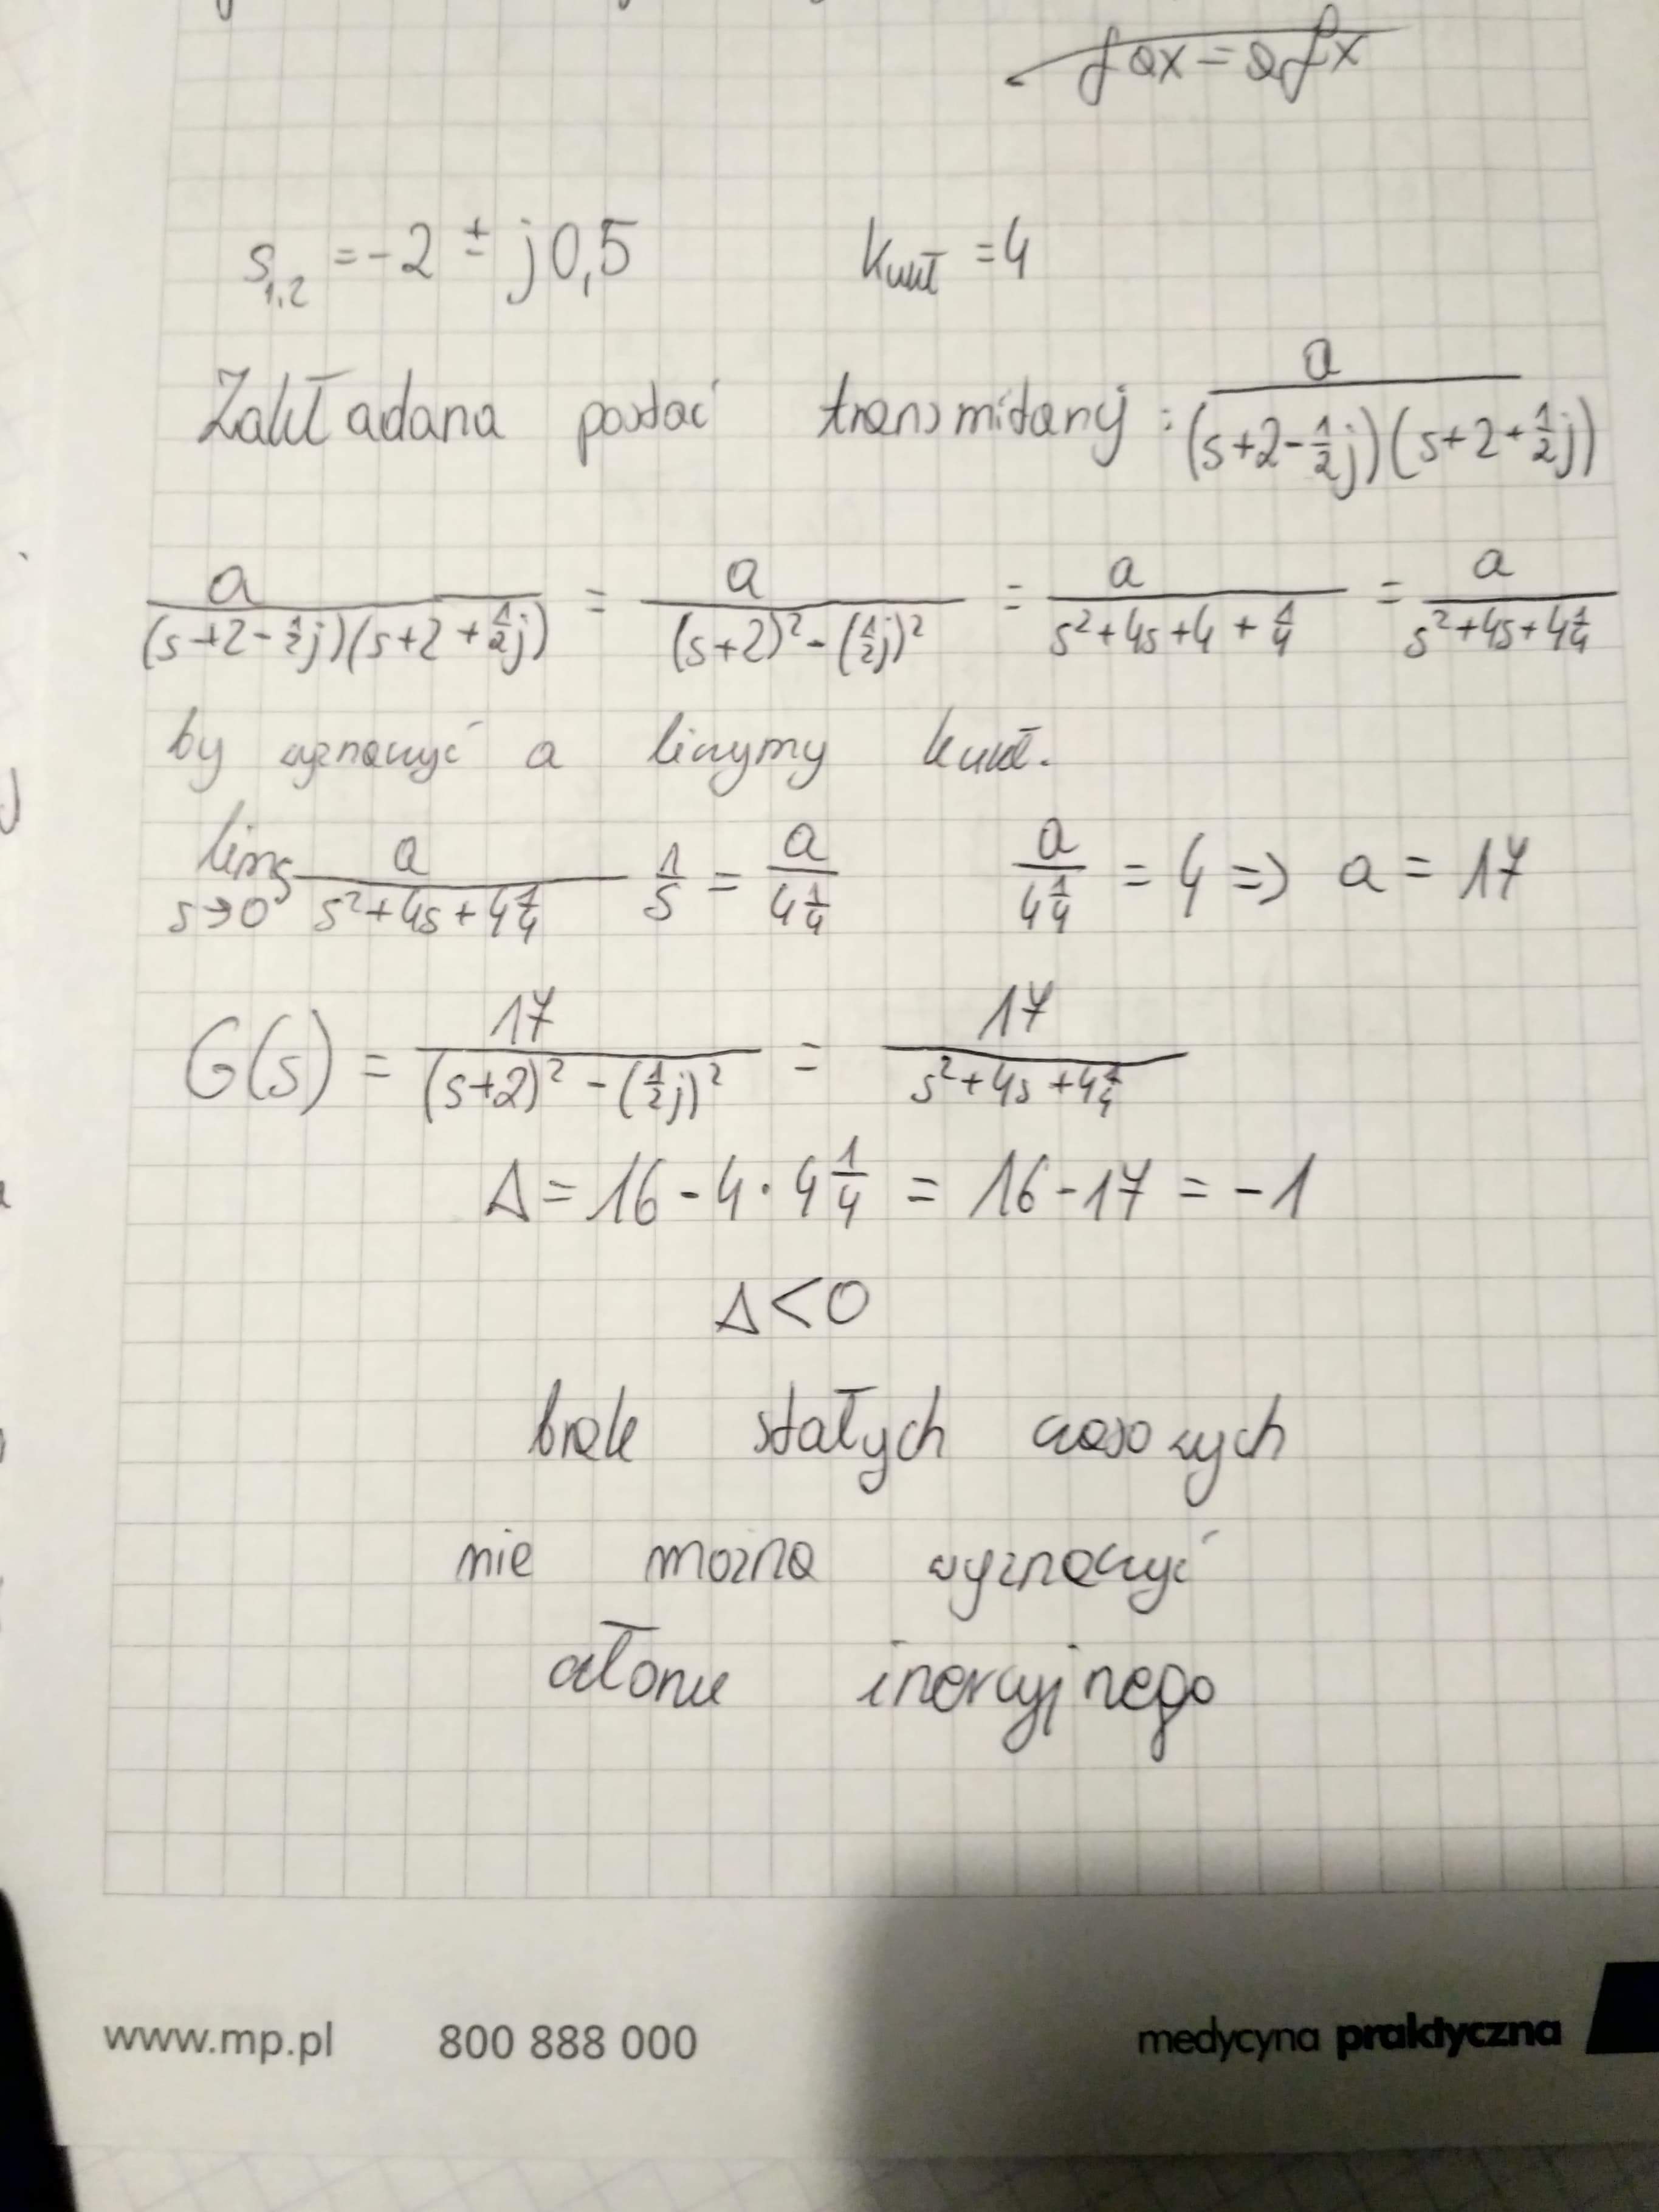 fax = afx
s₁,₂ = -2 ± j0,5    kukł = 4
Zakładana postać transmitancji: a / ((s+2-½j)(s+2+½j))
a / ((s+2-½j)(s+2+½j)) = a / ((s+2)² - (½j)²) = a / (s²+4s+4+¼) = a / (s²+4s+4¼)
by wyznaczyć a liczymy kukł.
lim s→0 s a / (s²+4s+4¼) 1/s = a / 4¼    a / 4¼ = 4 => a = 17
G(s) = 17 / ((s+2)² - (½j)²) = 17 / (s²+4s+4¼)
Δ = 16 - 4 · 4¼ = 16 - 17 = -1
Δ < 0
brak stałych czasowych
nie można wyznaczyć
członu inercyjnego
www.mp.pl 800 888 000 medycyna praktyczna